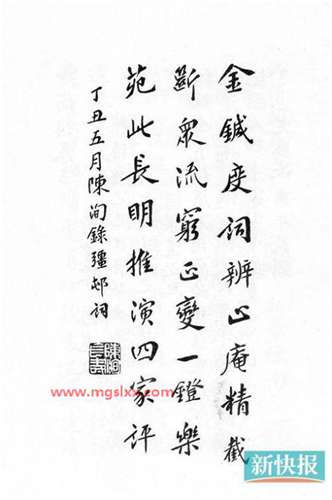 金鍼度詞辨止庵精截
斷眾流窮正變一鐙樂
苑此長明推演四家評
丁丑五月陳洵錄彊邨詞
www.mgslxx.com
新快报